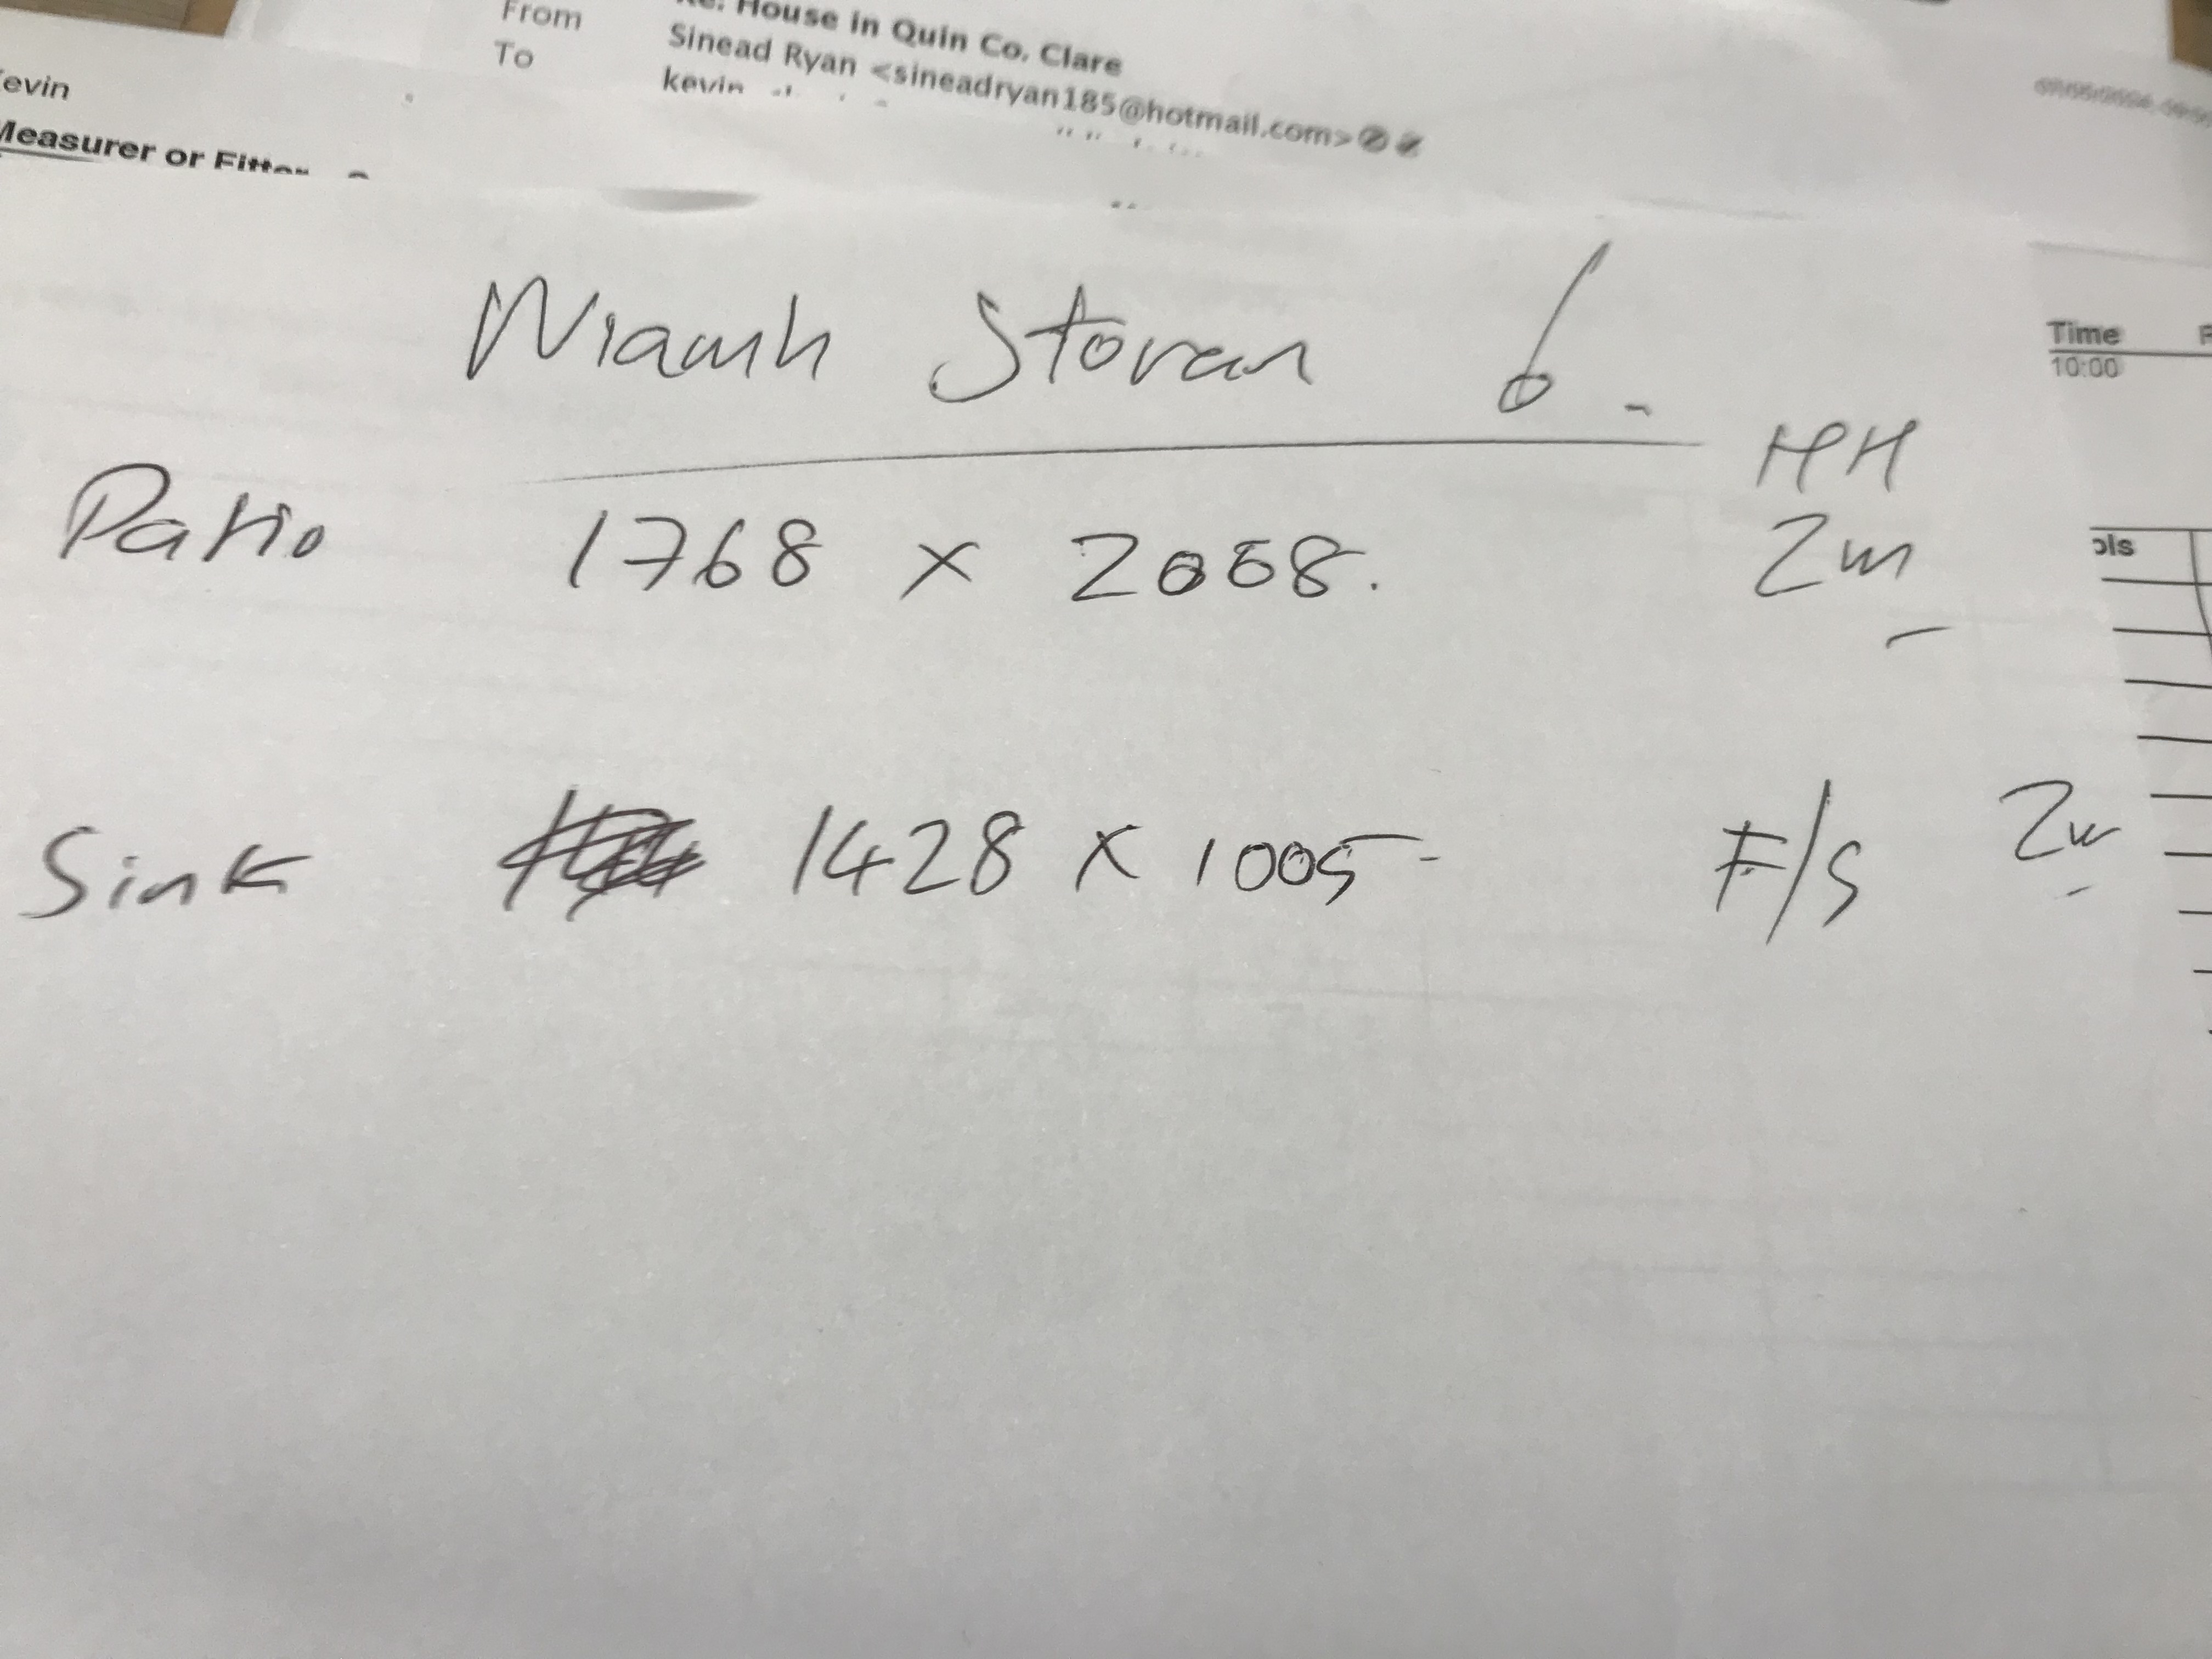 Re: House in Quin Co. Clare
From Sinead Ryan <sineadryan185@hotmail.com>
To kevin
evin
Measurer or Fitter
Time
10:00
ols
Niamh Storan 6.
HH
Patio 1768 x 2068. 2m
Sink 1428 x 1005 F/S 2m